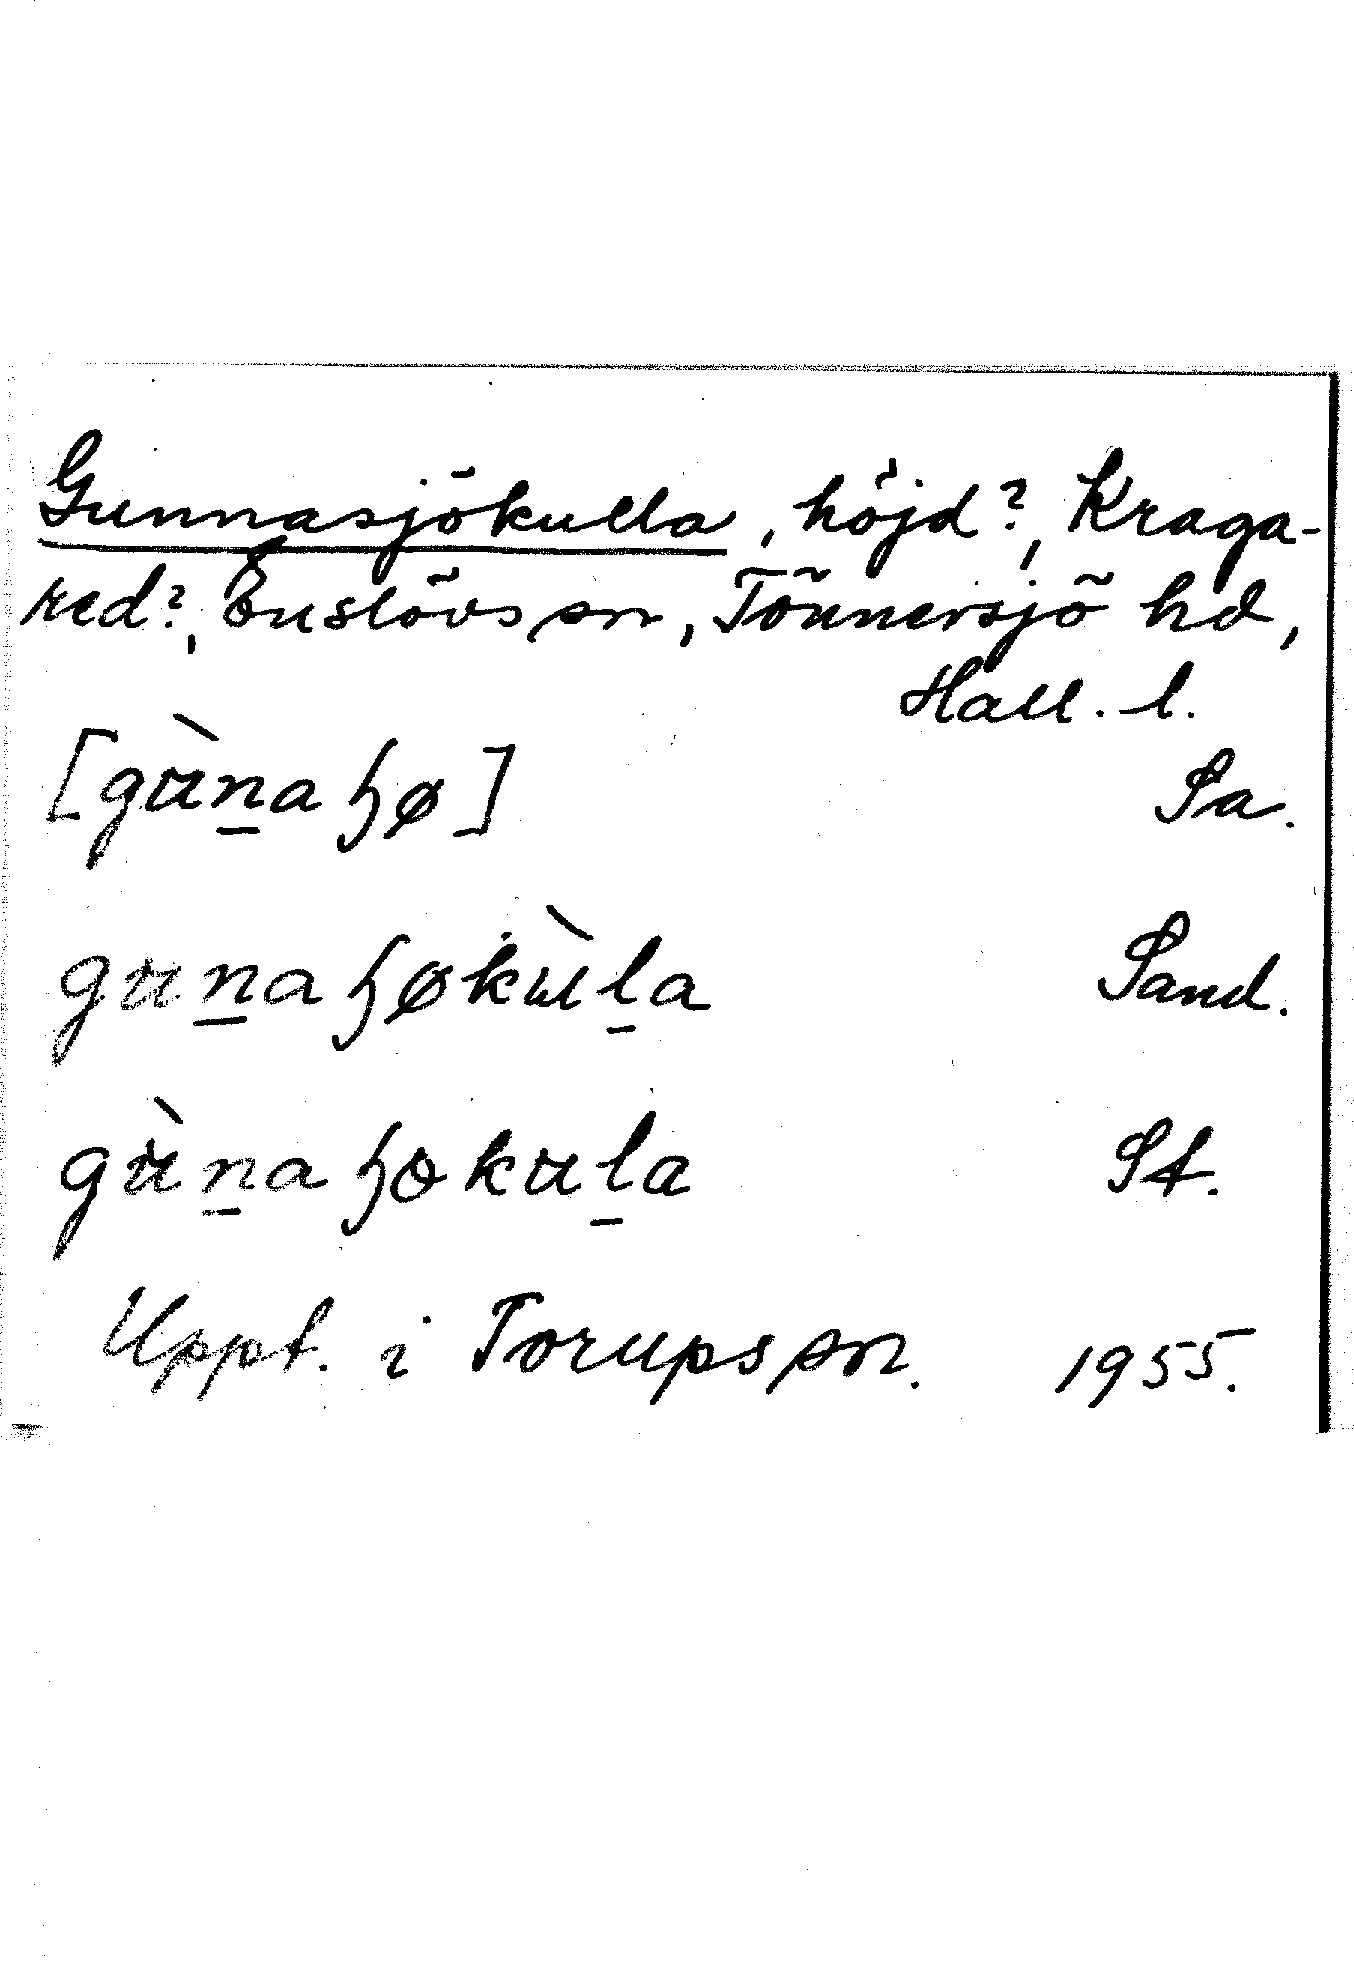 Gunnasjökulla, höjd?, Kraga-
red?, Enslövs sn, Tönnersjö hd,
Hall. l.
[gùn̲a ɧø] Sa.
gun̲a ɧøkùl̲a Sand.
gùn̲a ɧɵkul̲a St.
Uppt. i Torups sn. 1955.